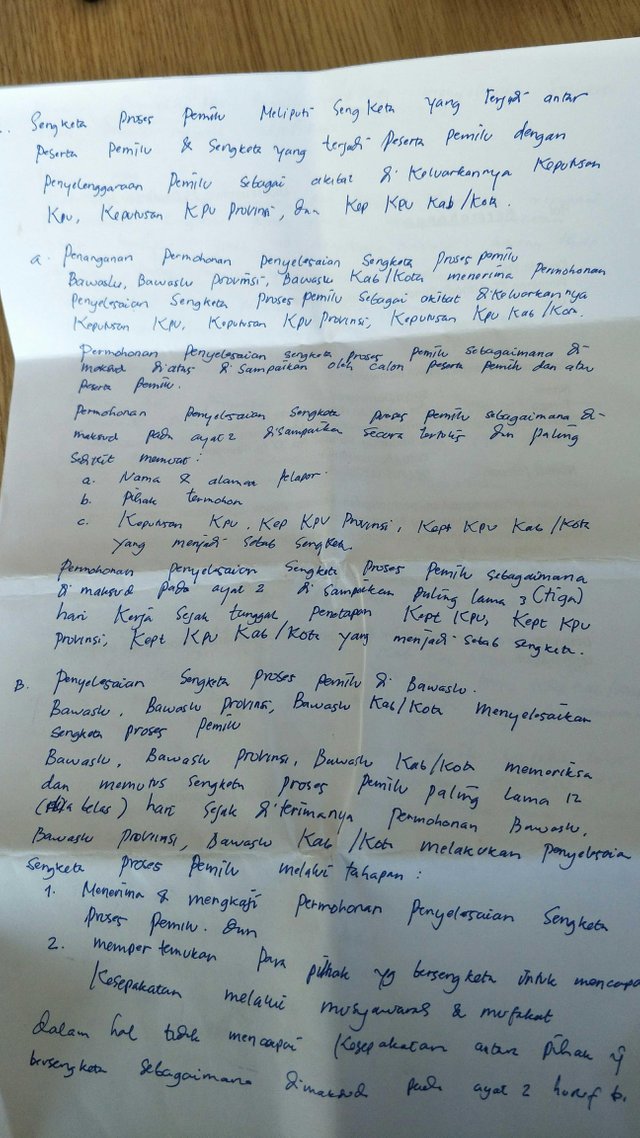 Sengketa proses pemilu meliputi sengketa yang terjadi antar
peserta pemilu & sengketa yang terjadi peserta pemilu dengan
penyelenggaraan pemilu sebagai akibat dikeluarkannya Keputusan
KPU, Keputusan KPU Provinsi, dan Kep KPU Kab/Kota.
a. Penanganan Permohonan penyelesaian Sengketa proses pemilu
Bawaslu, Bawaslu Provinsi, Bawaslu Kab/Kota menerima Permohonan
Penyelesaian Sengketa proses pemilu sebagai akibat dikeluarkannya
Keputusan KPU, Keputusan KPU Provinsi, Keputusan KPU Kab/Kota.
Permohonan penyelesaian sengketa proses pemilu sebagaimana di-
maksud diatas disampaikan oleh calon peserta pemilu dan atau
peserta pemilu.
Permohonan penyelesaian Sengketa proses pemilu sebagaimana di-
maksud pada ayat 2 disampaikan secara tertulis dan paling
sedikit memuat :
a. Nama & alamat pelapor
b. pihak termohon
c. Keputusan KPU, Kep KPU Provinsi, Kept KPU Kab/Kota
yang menjadi sebab sengketa.
Permohonan penyelesaian Sengketa proses Pemilu sebagaimana
di maksud pada ayat 2 di sampaikan paling lama 3 (tiga)
hari Kerja sejak tanggal penetapan Kept KPU, Kept KPU
Provinsi, Kept KPU Kab/Kota yang menjadi sebab sengketa.
B. Penyelesaian Sengketa proses pemilu di Bawaslu.
Bawaslu, Bawaslu Provinsi, Bawaslu Kab/Kota menyelesaikan
sengketa proses pemilu
Bawaslu, Bawaslu Provinsi, Bawaslu Kab/Kota memeriksa
dan memutus sengketa proses pemilu paling lama 12
belas) hari sejak diterimanya permohonan Bawaslu,
Bawaslu Provinsi, Bawaslu Kab/Kota melakukan penyelesaia
sengketa proses pemilu melalui tahapan :
1. Menerima & mengkaji permohonan Penyelesaian Sengketa
proses pemilu. dan
2. mempertemukan para pihak yg bersengketa untuk mencapa
Kesepakatan melalui musyawarah & mufakat
dalam hal tidak mencapai Kesepakatan antara pihak y
bersengketa sebagaimana dimaksud pada ayat 2 huruf b.